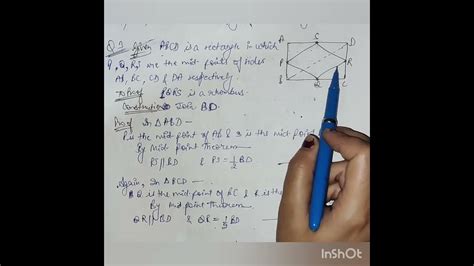 Q3 Given ABCD is a rectangle in which
P, Q, R, S are the mid points of sides
AB, BC, CD & DA respectively.
To Proof PQRS is a rhombus.
Construction Join BD.
Proof In △ABD —
P is the mid point of AB & S is the mid point
By Mid point theorem
PS || BD & PS = 1/2 BD
Again, In △BCD —
Q is the mid point of BC & R is the
By Mid point theorem
QR || BD & QR = 1/2 BD
A S D
P R
B Q C
InShOt